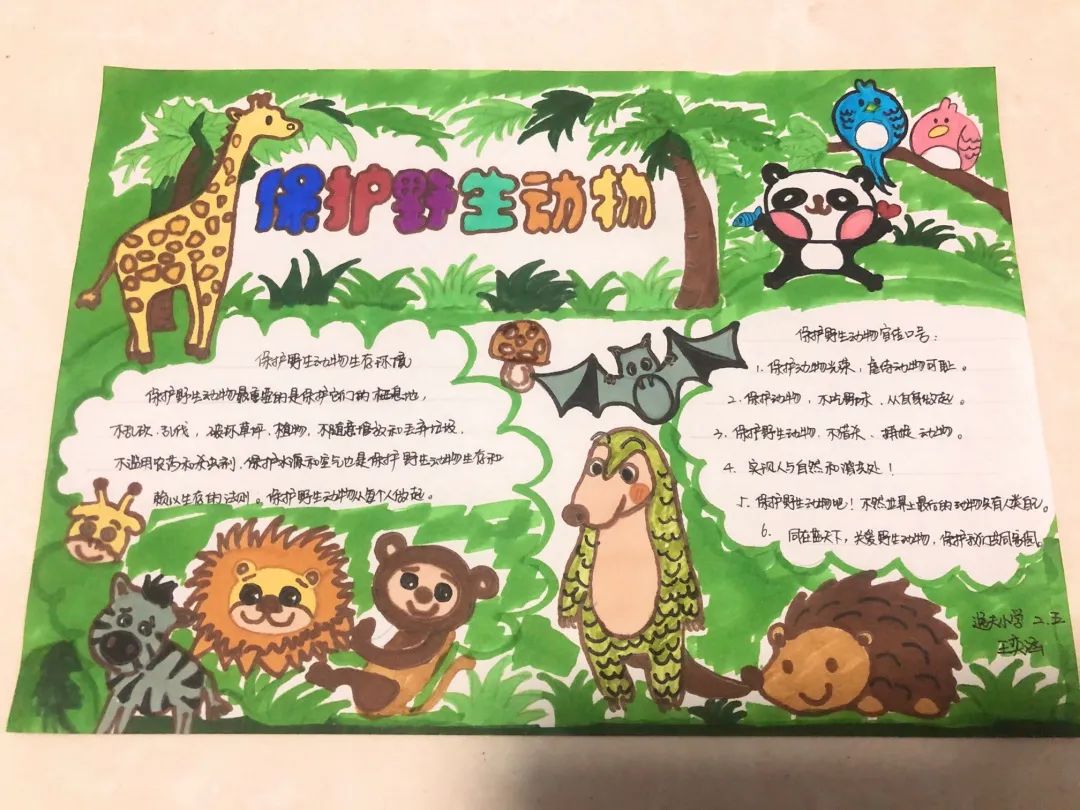 保护野生动物
保护野生动物生存环境
保护野生动物最重要的是保护它们的栖息地,
不乱砍、乱伐,破坏草坪、植物,不随意堆放和丢弃垃圾,
不滥用农药和杀虫剂,保护水源和空气也是保护野生动物生存和
赖以生存的法则。保护野生动物从每个人做起。
保护野生动物宣传口号:
1. 保护动物光荣,虐待动物可耻。
2. 保护动物,不吃野味,从自身做起。
3. 保护野生动物,不猎杀、捕捉动物。
4. 实现人与自然和谐共处!
5. 保护野生动物吧!不然世界上最后的动物只有人类自己。
6. 同在蓝天下,关爱野生动物,保护我们共同家园。
逸夫小学 二.五
王奕涵